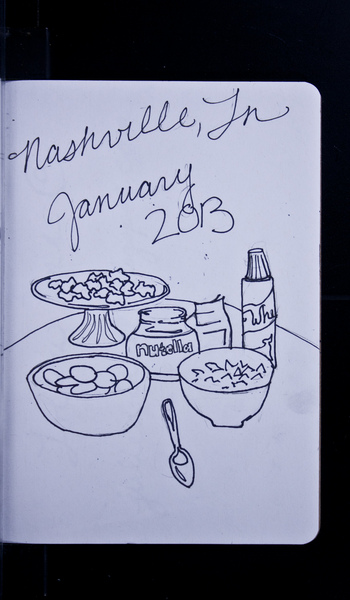 Nashville, Tn
January
2013
nutella
Whi